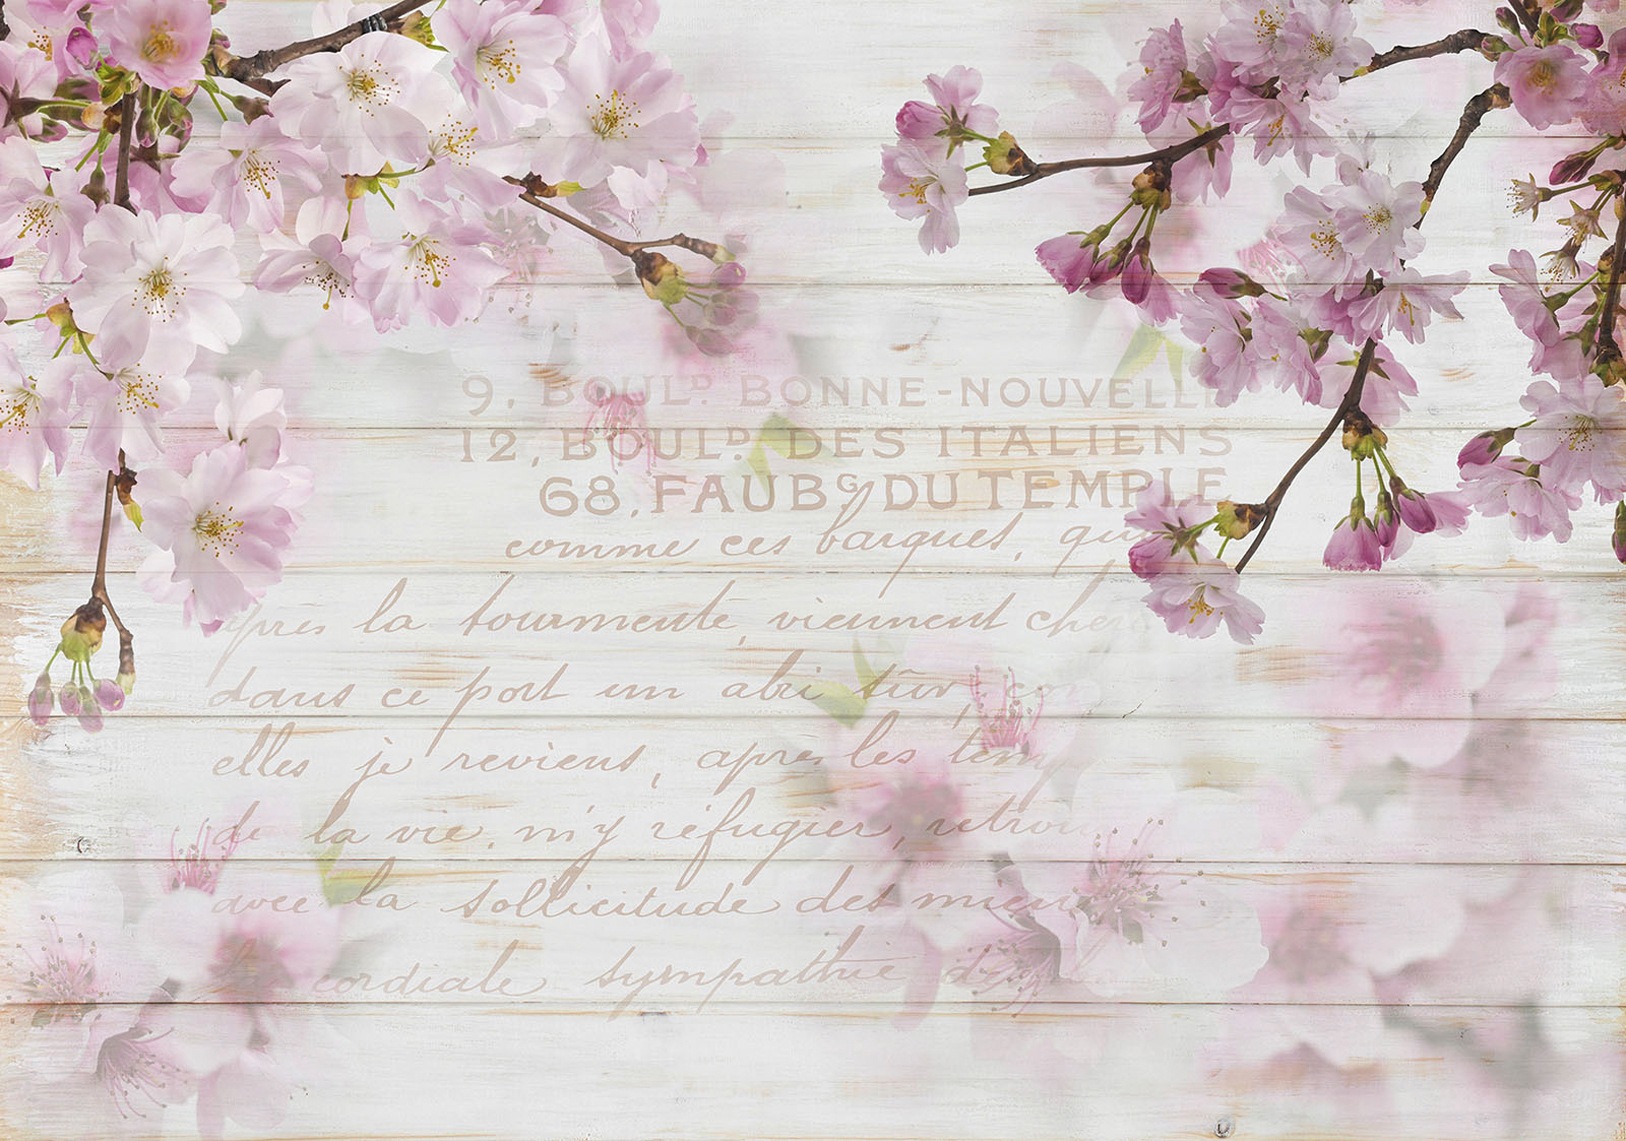 9, BOULD. BONNE-NOUVELLE
12, BOULD. DES ITALIENS
68, FAUBG. DU TEMPLE
comme ces barques, qui
après la tourmente, viennent cher
dans ce port un abri sûr, com
elles je reviens, après les tem
de la vie, m'y réfugier, retrou
avec la sollicitude des miens
cordiale sympathie de